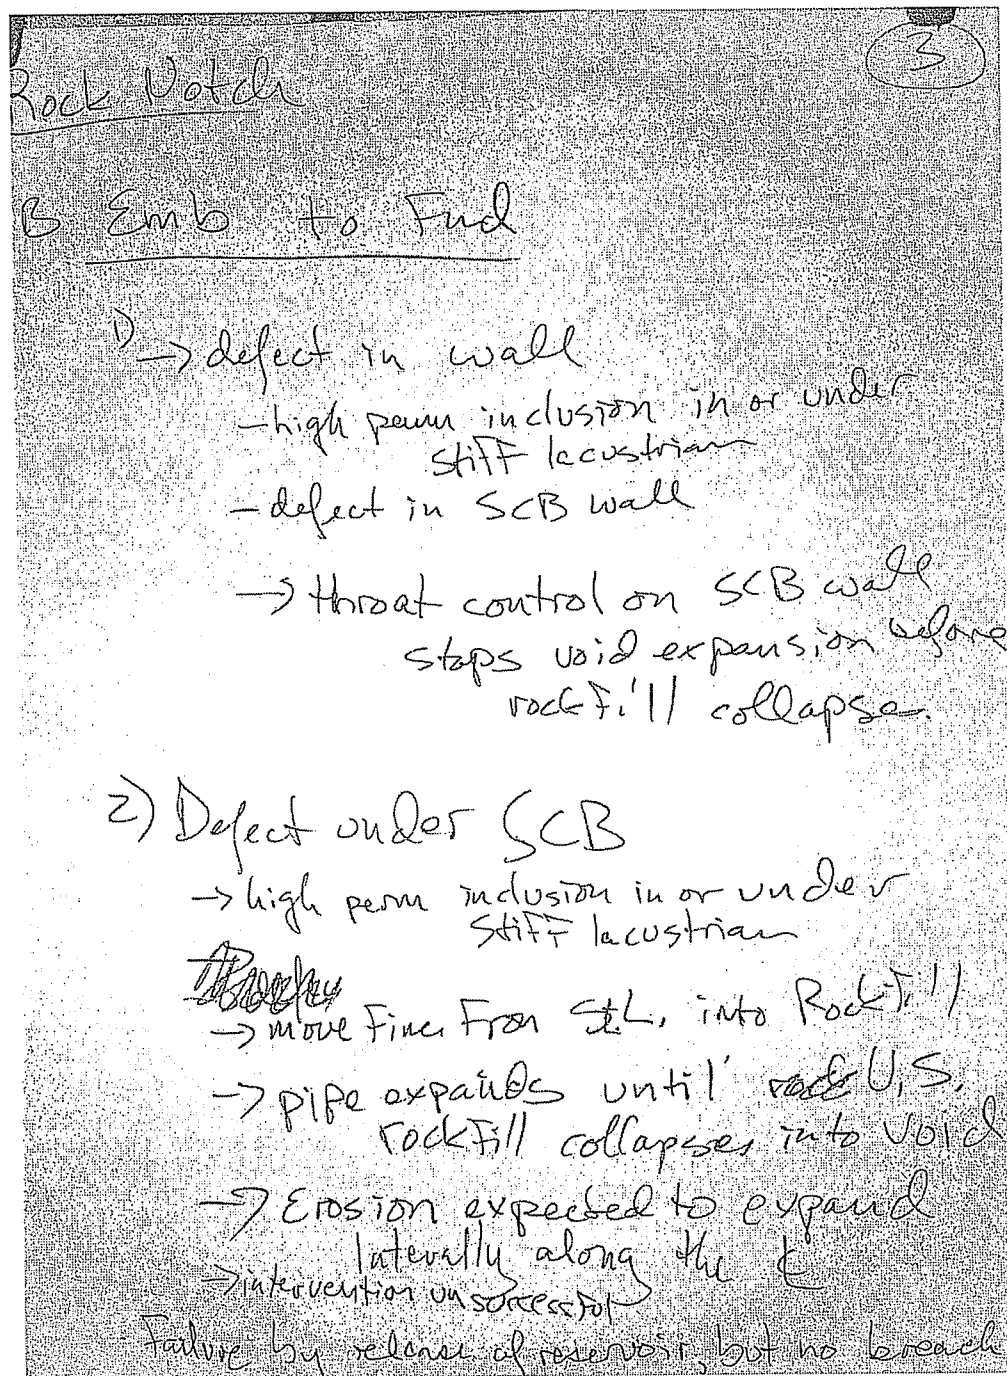 3
Rock Notch
B Emb to Fnd
1) → defect in wall
- high perm inclusion in or under
stiff lacustrian
- defect in SCB wall
→ throat control on SCB wall
stops void expansion before
rockfill collapse.
2) Defect under SCB
→ high perm inclusion in or under
stiff lacustrian
→ move fines from St.L. into Rockfill
→ pipe expands until U.S.
rockfill collapses into void
→ Erosion expected to expand
laterally along the ℄
→ intervention unsuccessful
Failure by release of reservoir, but no breach